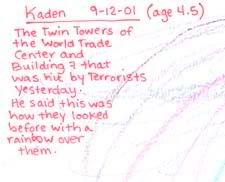 Kaden 9-12-01 (age 4.5)
The Twin Towers of
the World Trade
Center and
Building 7 that
was hit by Terrorists
yesterday.
He said this was
how they looked
before with a
rainbow over
them.